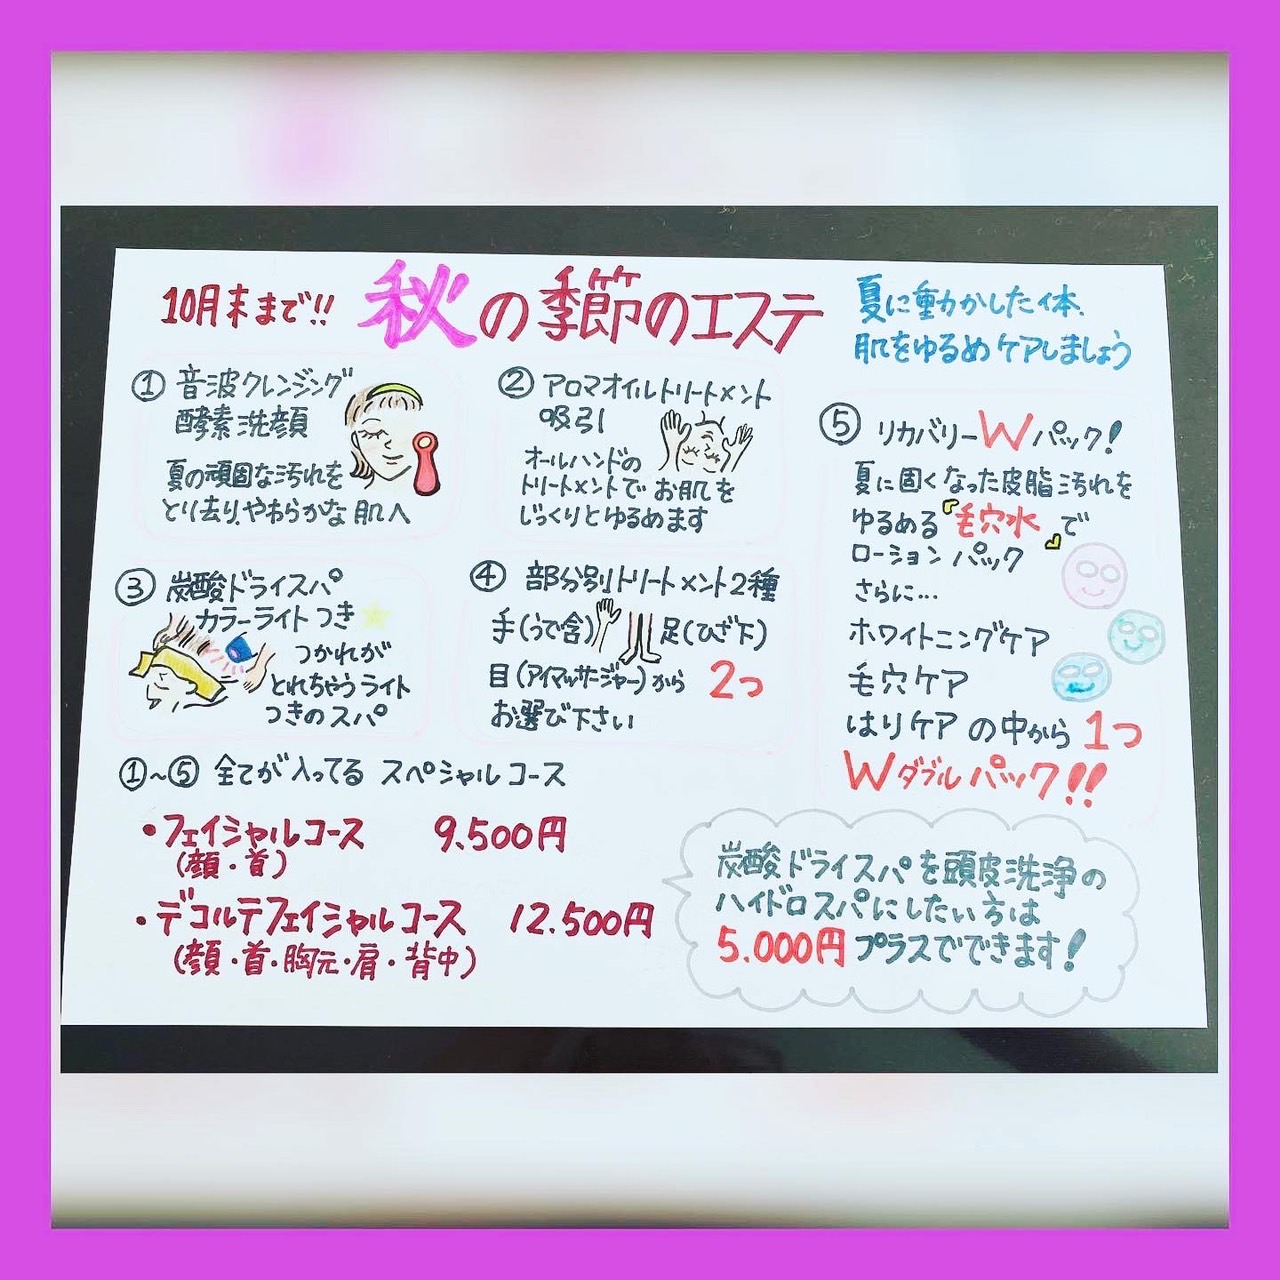 10月末まで!!
秋の季節のエステ
夏に動かした体、
肌をゆるめケアしましょう
① 音波クレンジング
酵素洗顔
夏の頑固な汚れを
とり去り、やわらかな肌へ
② アロマオイルトリートメント
吸引
オールハンドの
トリートメントでお肌を
じっくりとゆるめます
③ 炭酸ドライスパ
カラーライトつき
つかれが
とれちゃうライト
つきのスパ
④ 部分別トリートメント2種
手(うで含) 足(ひざ下)
目(アイマッサージャー)から 2つ
お選び下さい
⑤ リカバリーWパック!
夏に固くなった皮脂汚れを
ゆるめる『毛穴水』で
ローションパック
さらに...
ホワイトニングケア
毛穴ケア
はりケアの中から1つ
Wダブルパック!!
①~⑤ 全てが入ってる スペシャルコース
・フェイシャルコース 9.500円
(顔・首)
・デコルテフェイシャルコース 12.500円
(顔・首・胸元・肩・背中)
炭酸ドライスパを頭皮洗浄の
ハイドロスパにしたい方は
5.000円プラスでできます!